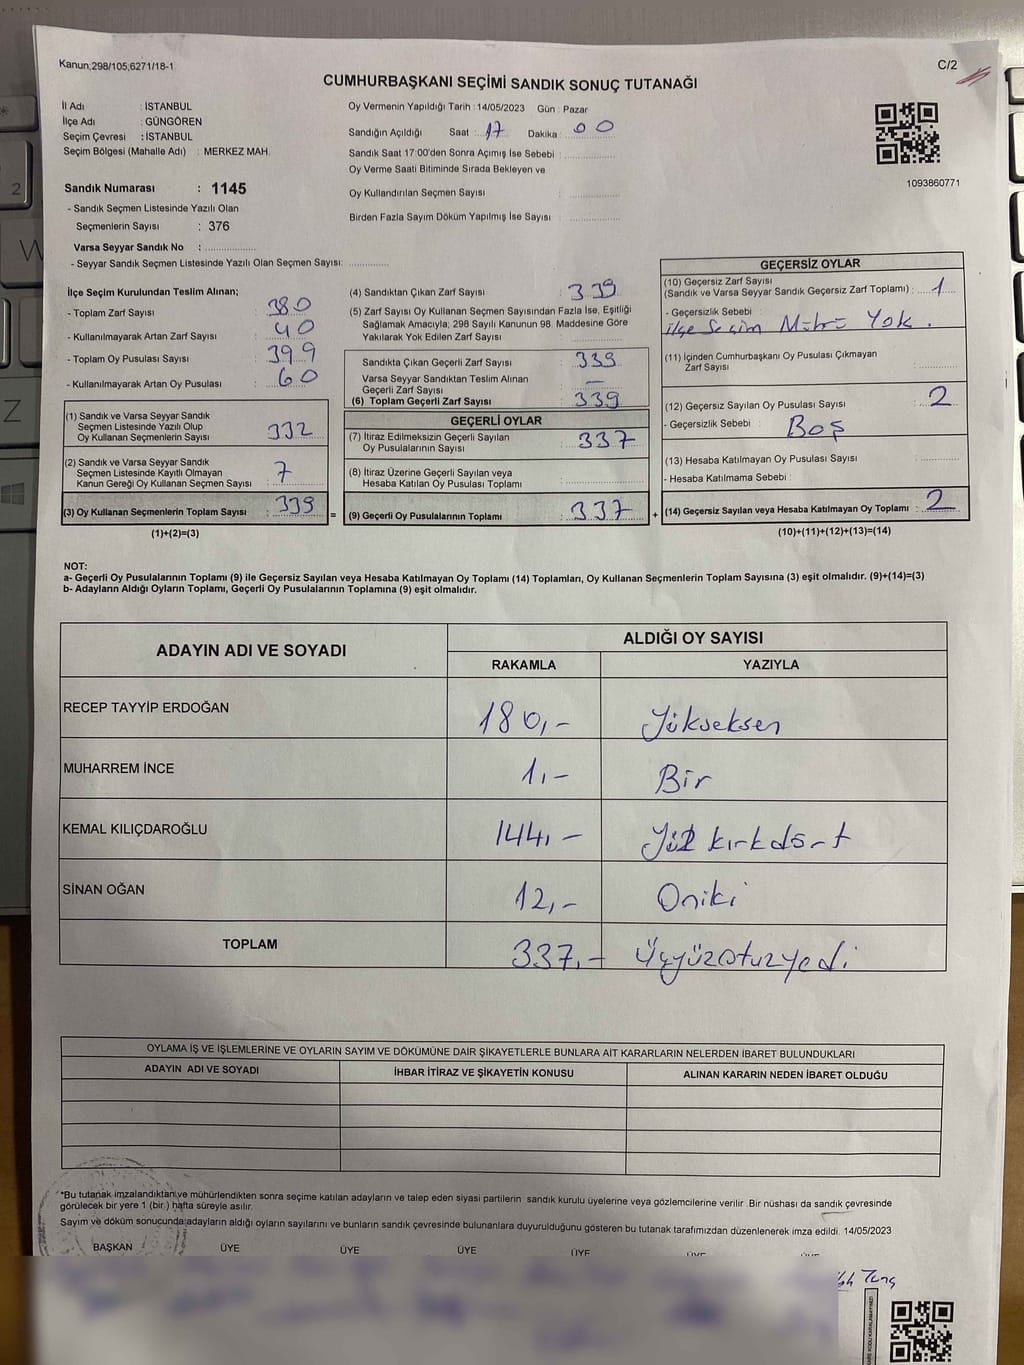 Kanun;298/105;6271/18-1
C/2
CUMHURBAŞKANI SEÇİMİ SANDIK SONUÇ TUTANAĞI
İl Adı : İSTANBUL
İlçe Adı : GÜNGÖREN
Seçim Çevresi : İSTANBUL
Seçim Bölgesi (Mahalle Adı) : MERKEZ MAH.
Sandık Numarası : 1145
- Sandık Seçmen Listesinde Yazılı Olan
Seçmenlerin Sayısı : 376
Varsa Seyyar Sandık No :
- Seyyar Sandık Seçmen Listesinde Yazılı Olan Seçmen Sayısı:
Oy Vermenin Yapıldığı Tarih : 14/05/2023 Gün : Pazar
Sandığın Açıldığı Saat : 17 Dakika : 00
Sandık Saat 17:00'den Sonra Açımış İse Sebebi :
Oy Verme Saati Bitiminde Sırada Bekleyen ve
Oy Kullandırılan Seçmen Sayısı :
Birden Fazla Sayım Döküm Yapılmış İse Sayısı :
1093860771
İlçe Seçim Kurulundan Teslim Alınan;
- Toplam Zarf Sayısı : 380
- Kullanılmayarak Artan Zarf Sayısı : 40
- Toplam Oy Pusulası Sayısı : 399
- Kullanılmayarak Artan Oy Pusulası : 60
(1) Sandık ve Varsa Seyyar Sandık
Seçmen Listesinde Yazılı Olup
Oy Kullanan Seçmenlerin Sayısı : 332
(2) Sandık ve Varsa Seyyar Sandık
Seçmen Listesinde Kayıtlı Olmayan
Kanun Gereği Oy Kullanan Seçmen Sayısı : 7
(3) Oy Kullanan Seçmenlerin Toplam Sayısı : 339
(1)+(2)=(3)
=
(4) Sandıktan Çıkan Zarf Sayısı : 339
(5) Zarf Sayısı Oy Kullanan Seçmen Sayısından Fazla İse, Eşitliği
Sağlamak Amacıyla; 298 Sayılı Kanunun 98. Maddesine Göre
Yakılarak Yok Edilen Zarf Sayısı :
Sandıkta Çıkan Geçerli Zarf Sayısı : 339
Varsa Seyyar Sandıktan Teslim Alınan
Geçerli Zarf Sayısı : —
(6) Toplam Geçerli Zarf Sayısı : 339
GEÇERLİ OYLAR
(7) İtiraz Edilmeksizin Geçerli Sayılan
Oy Pusulalarının Sayısı : 337
(8) İtiraz Üzerine Geçerli Sayılan veya
Hesaba Katılan Oy Pusulası Toplamı :
(9) Geçerli Oy Pusulalarının Toplamı : 337
+
GEÇERSİZ OYLAR
(10) Geçersiz Zarf Sayısı
(Sandık ve Varsa Seyyar Sandık Geçersiz Zarf Toplamı) : 1
- Geçersizlik Sebebi :
ilçe Seçim Mührü Yok.
(11) İçinden Cumhurbaşkanı Oy Pusulası Çıkmayan
Zarf Sayısı :
(12) Geçersiz Sayılan Oy Pusulası Sayısı : 2
- Geçersizlik Sebebi : Boş
(13) Hesaba Katılmayan Oy Pusulası Sayısı :
- Hesaba Katılmama Sebebi :
(14) Geçersiz Sayılan veya Hesaba Katılmayan Oy Toplamı : 2
(10)+(11)+(12)+(13)=(14)
NOT:
a- Geçerli Oy Pusulalarının Toplamı (9) ile Geçersiz Sayılan veya Hesaba Katılmayan Oy Toplamı (14) Toplamları, Oy Kullanan Seçmenlerin Toplam Sayısına (3) eşit olmalıdır. (9)+(14)=(3)
b- Adayların Aldığı Oyların Toplamı, Geçerli Oy Pusulalarının Toplamına (9) eşit olmalıdır.
ADAYIN ADI VE SOYADI
ALDIĞI OY SAYISI
RAKAMLA YAZIYLA
RECEP TAYYİP ERDOĞAN 180,- Yükseksen
MUHARREM İNCE 1,- Bir
KEMAL KILIÇDAROĞLU 144,- Yüz kırkdört
SİNAN OĞAN 12,- Oniki
TOPLAM 337,- Üçyüzotuzyedi
OYLAMA İŞ VE İŞLEMLERİNE VE OYLARIN SAYIM VE DÖKÜMÜNE DAİR ŞİKAYETLERLE BUNLARA AİT KARARLARIN NELERDEN İBARET BULUNDUKLARI
ADAYIN ADI VE SOYADI İHBAR İTİRAZ VE ŞİKAYETİN KONUSU ALINAN KARARIN NEDEN İBARET OLDUĞU
"Bu tutanak imzalandıktan ve mühürlendikten sonra seçime katılan adayların ve talep eden siyasi partilerin sandık kurulu üyelerine veya gözlemcilerine verilir. Bir nüshası da sandık çevresinde
görülecek bir yere 1 (bir) hafta süreyle asılır.
Sayım ve döküm sonucunda adayların aldığı oyların sayılarını ve bunların sandık çevresinde bulunanlara duyurulduğunu gösteren bu tutanak tarafımızdan düzenlenerek imza edildi. 14/05/2023
BAŞKAN ÜYE ÜYE ÜYE ÜYE ÜYE ÜYE